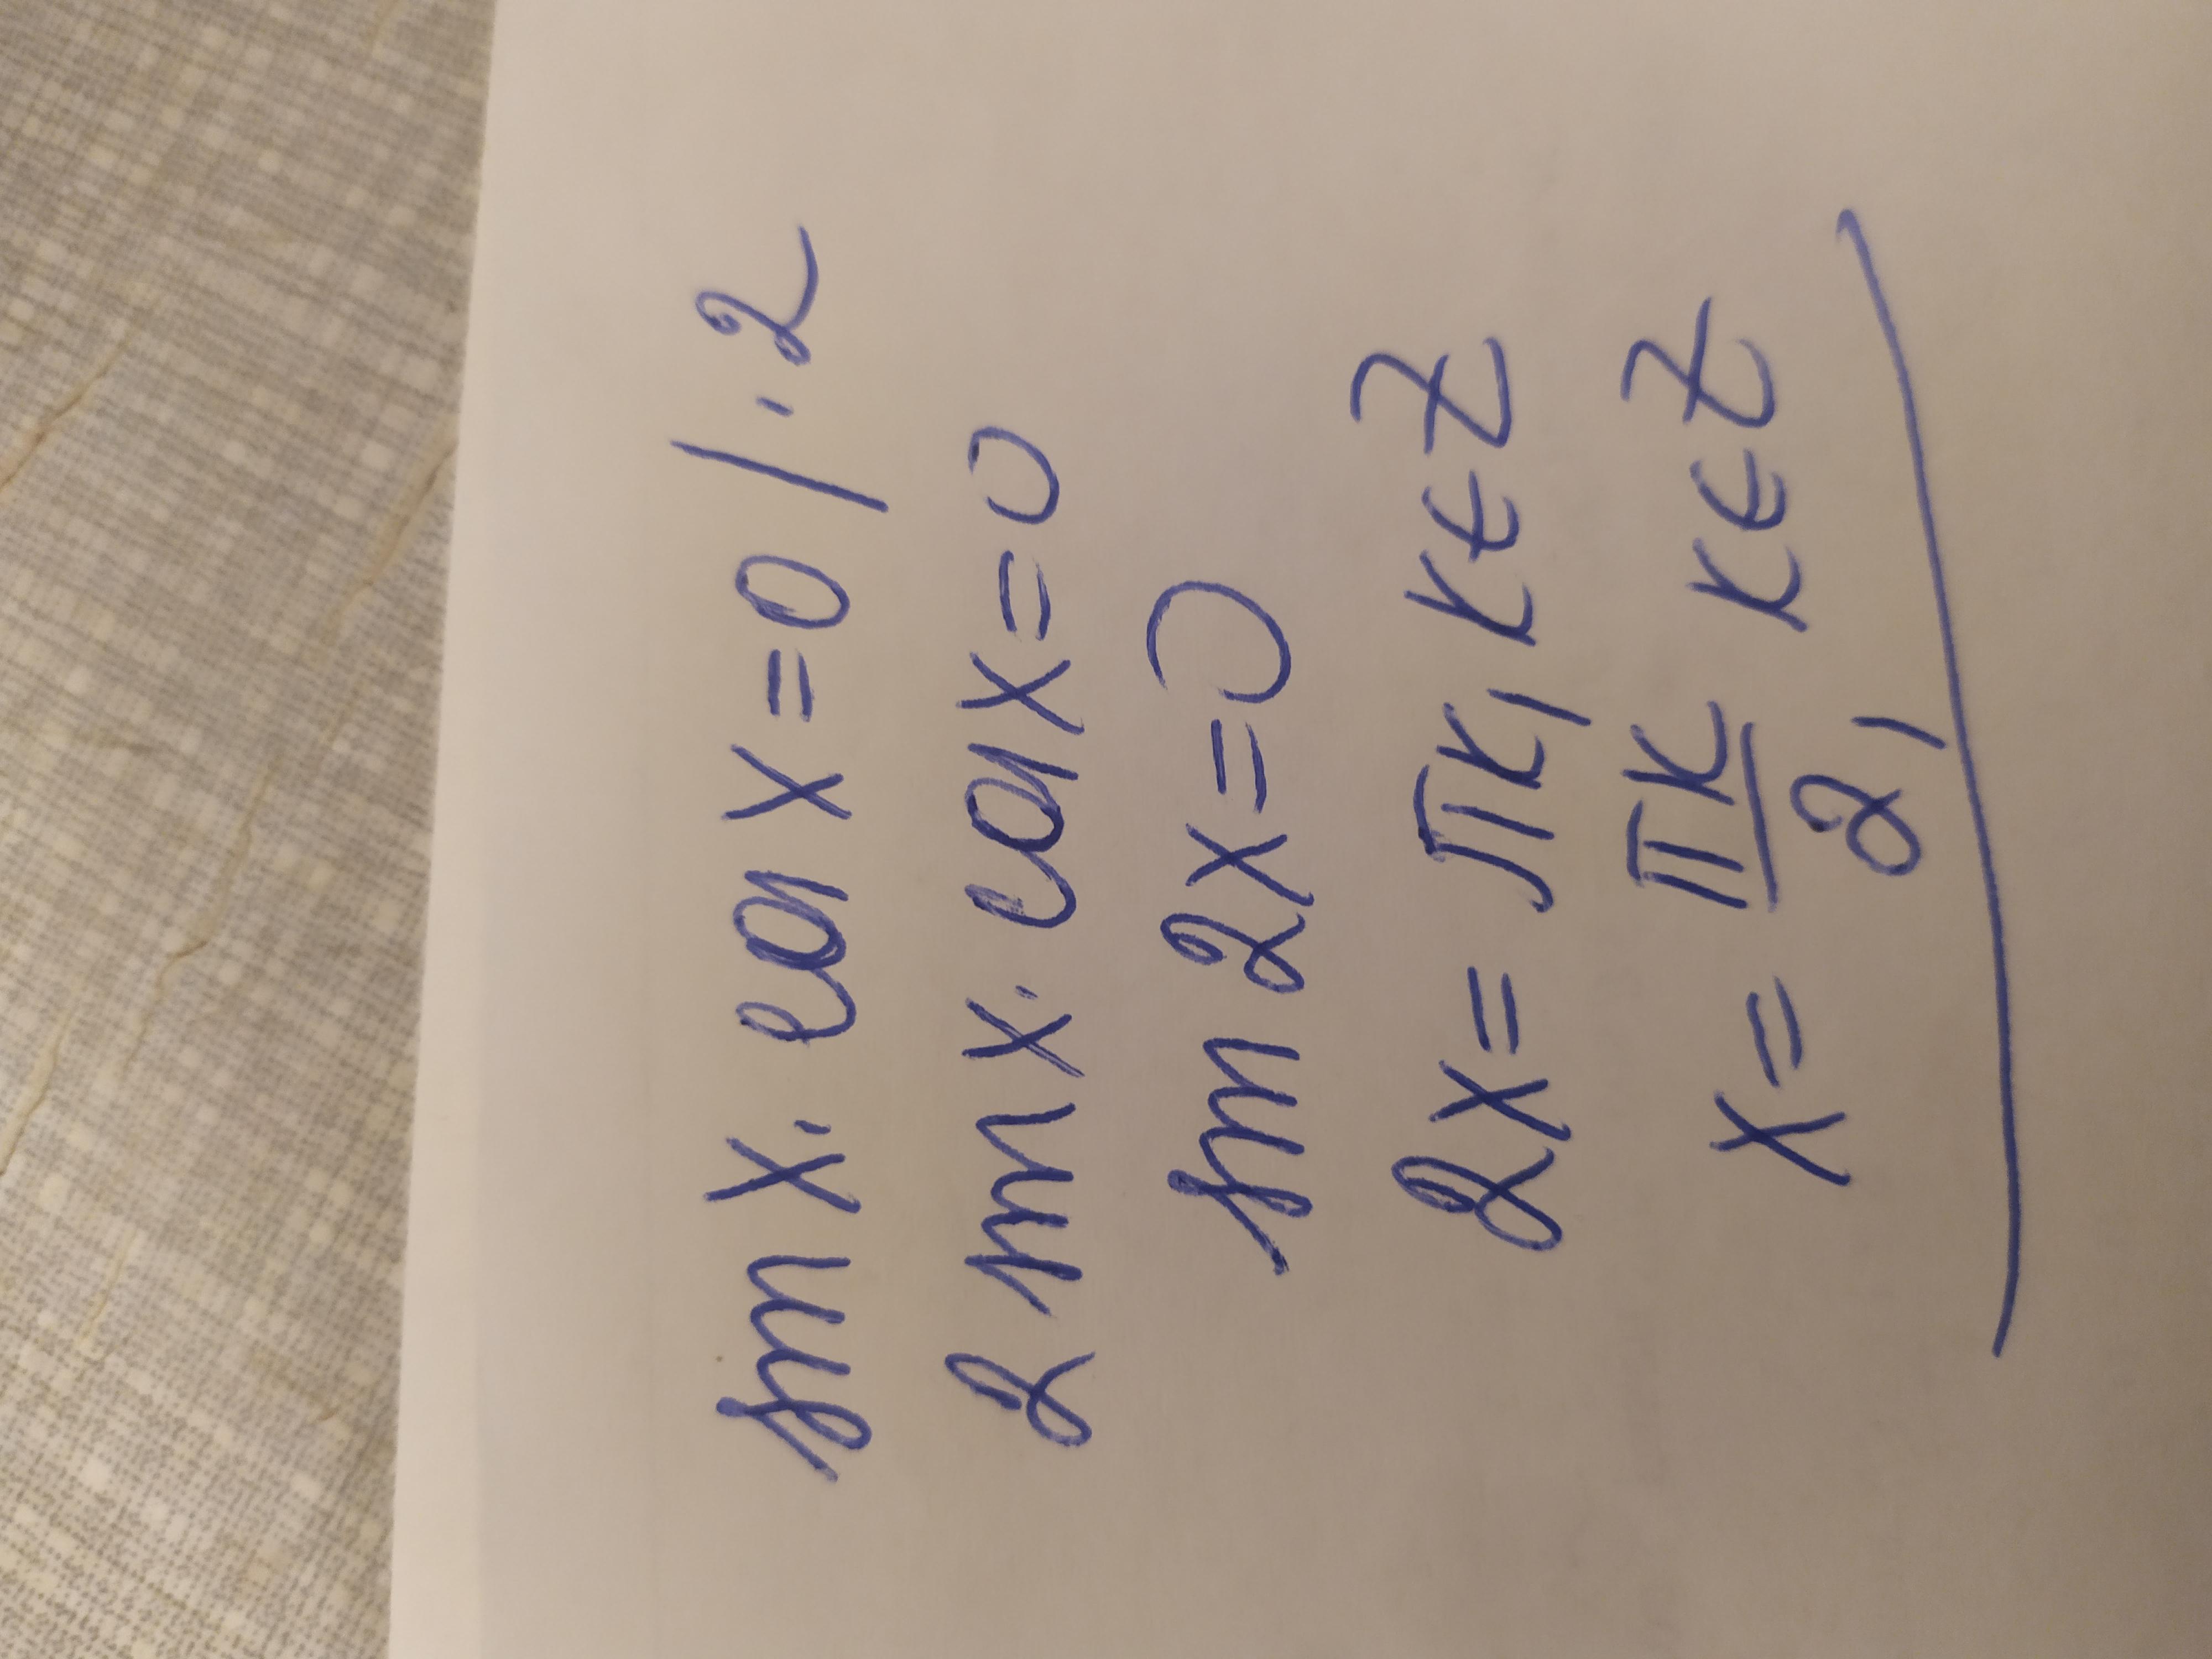 sin x · cos x = 0 | · 2
2 sin x · cos x = 0
sin 2x = 0
2x = πk, k ∈ Z
x = πk/2, k ∈ Z